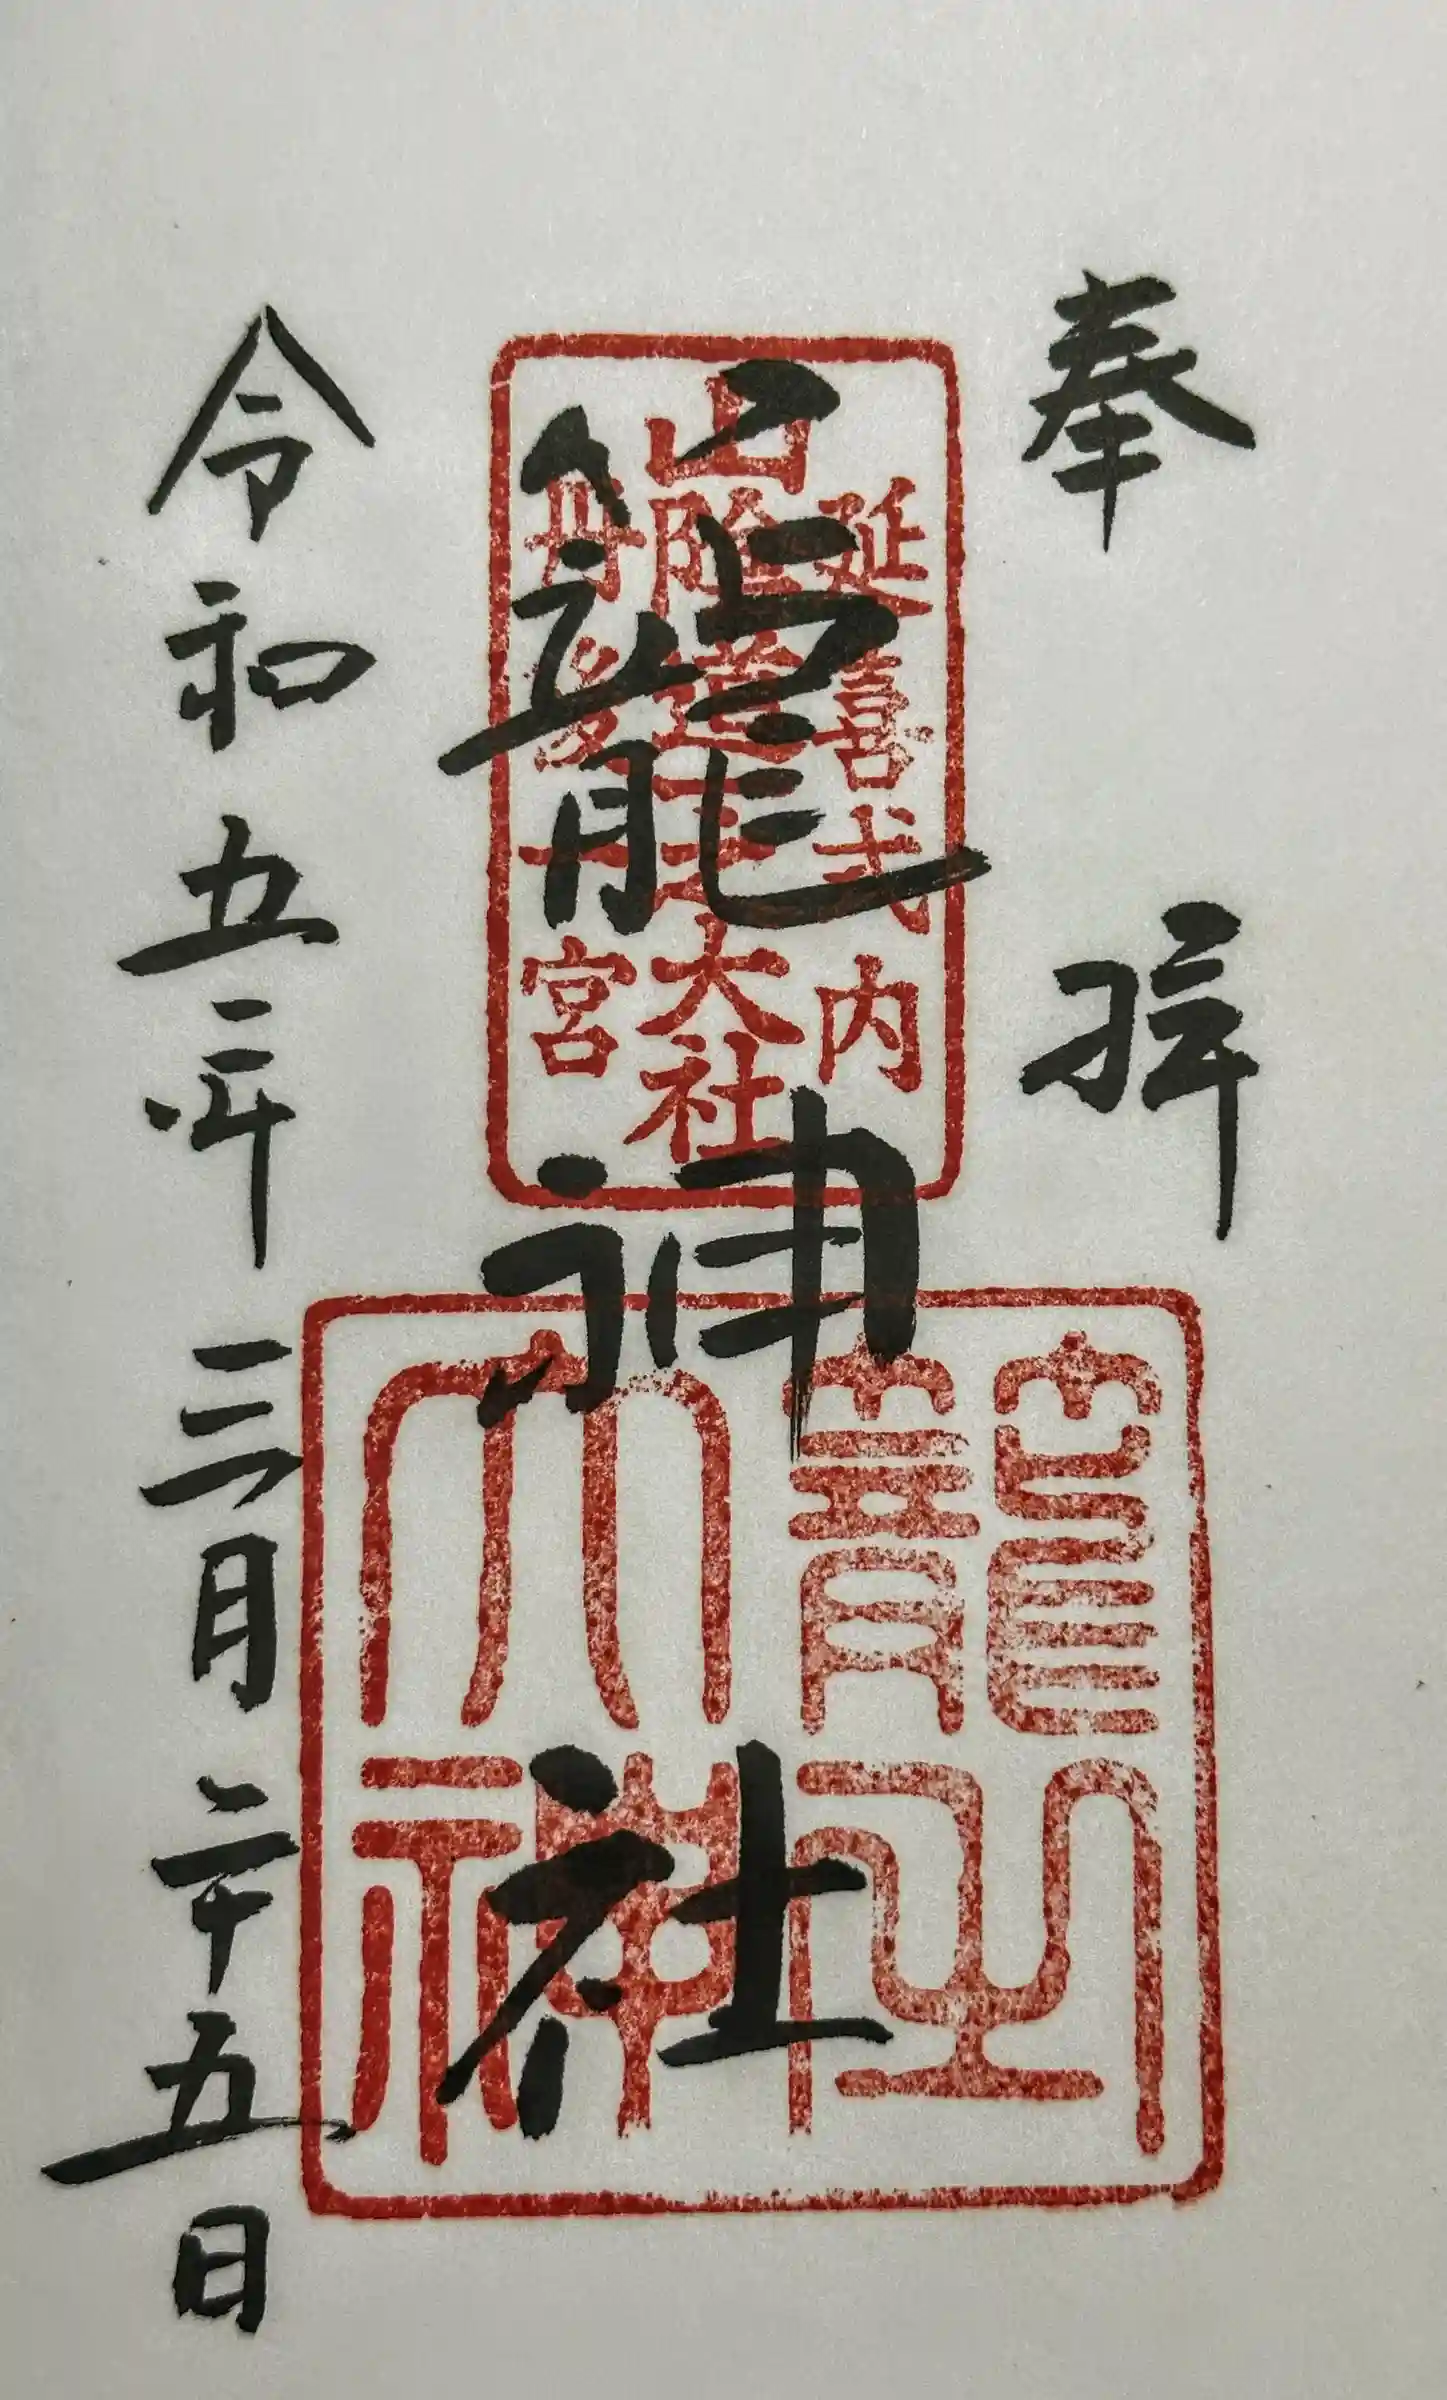 奉拝
延喜式内
山陰道
大社
丹後一宮
籠神社
籠之大神
令和五年三月二十五日